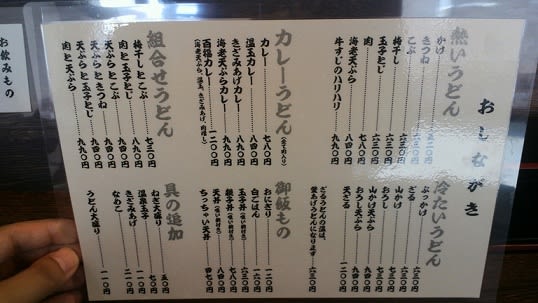 おしながき
熱いうどん
かけ 五二〇円
きつね 六三〇円
こぶ 六三〇円
梅干し 六三〇円
玉子とじ 六三〇円
肉 七三〇円
海老天ぷら 八四〇円
牛すじのハリハリ
冷たいうどん
ぶっかけ
ざる
山かけ
おろし
山かけ天ぷら
おろし天ぷら
天ざる 一二〇〇円
ざるうどんの温は、
釜あげうどんになります 六三〇円
カレーうどん
カレー 七八〇円
温玉カレー 八四〇円
きざみあげカレー 八九〇円
海老天ぷらカレー 九九〇円
百福カレー 一二〇〇円
(海老天ぷら、温玉、きざみあげ、肉増し)
御飯もの
おにぎり 一二〇円
白ごはん 一六〇円
玉子丼(吸い物付き) 六三〇円
親子丼(吸い物付き) 七八〇円
天丼(吸い物付き) 八九〇円
ちっちゃい天丼 四七〇円
組合せうどん
梅干しとこぶ 七三〇円
肉と玉子とじ 八四〇円
天ぷらとこぶ 九四〇円
天ぷらときつね 九四〇円
天ぷらと玉子とじ 九四〇円
肉と天ぷら 九九〇円
具の追加
ねぎ大盛り 五〇円
温泉玉子 七〇円
きざみあげ 一一〇円
なめこ 二一〇円
うどん大盛り 一一〇円
お飲みもの